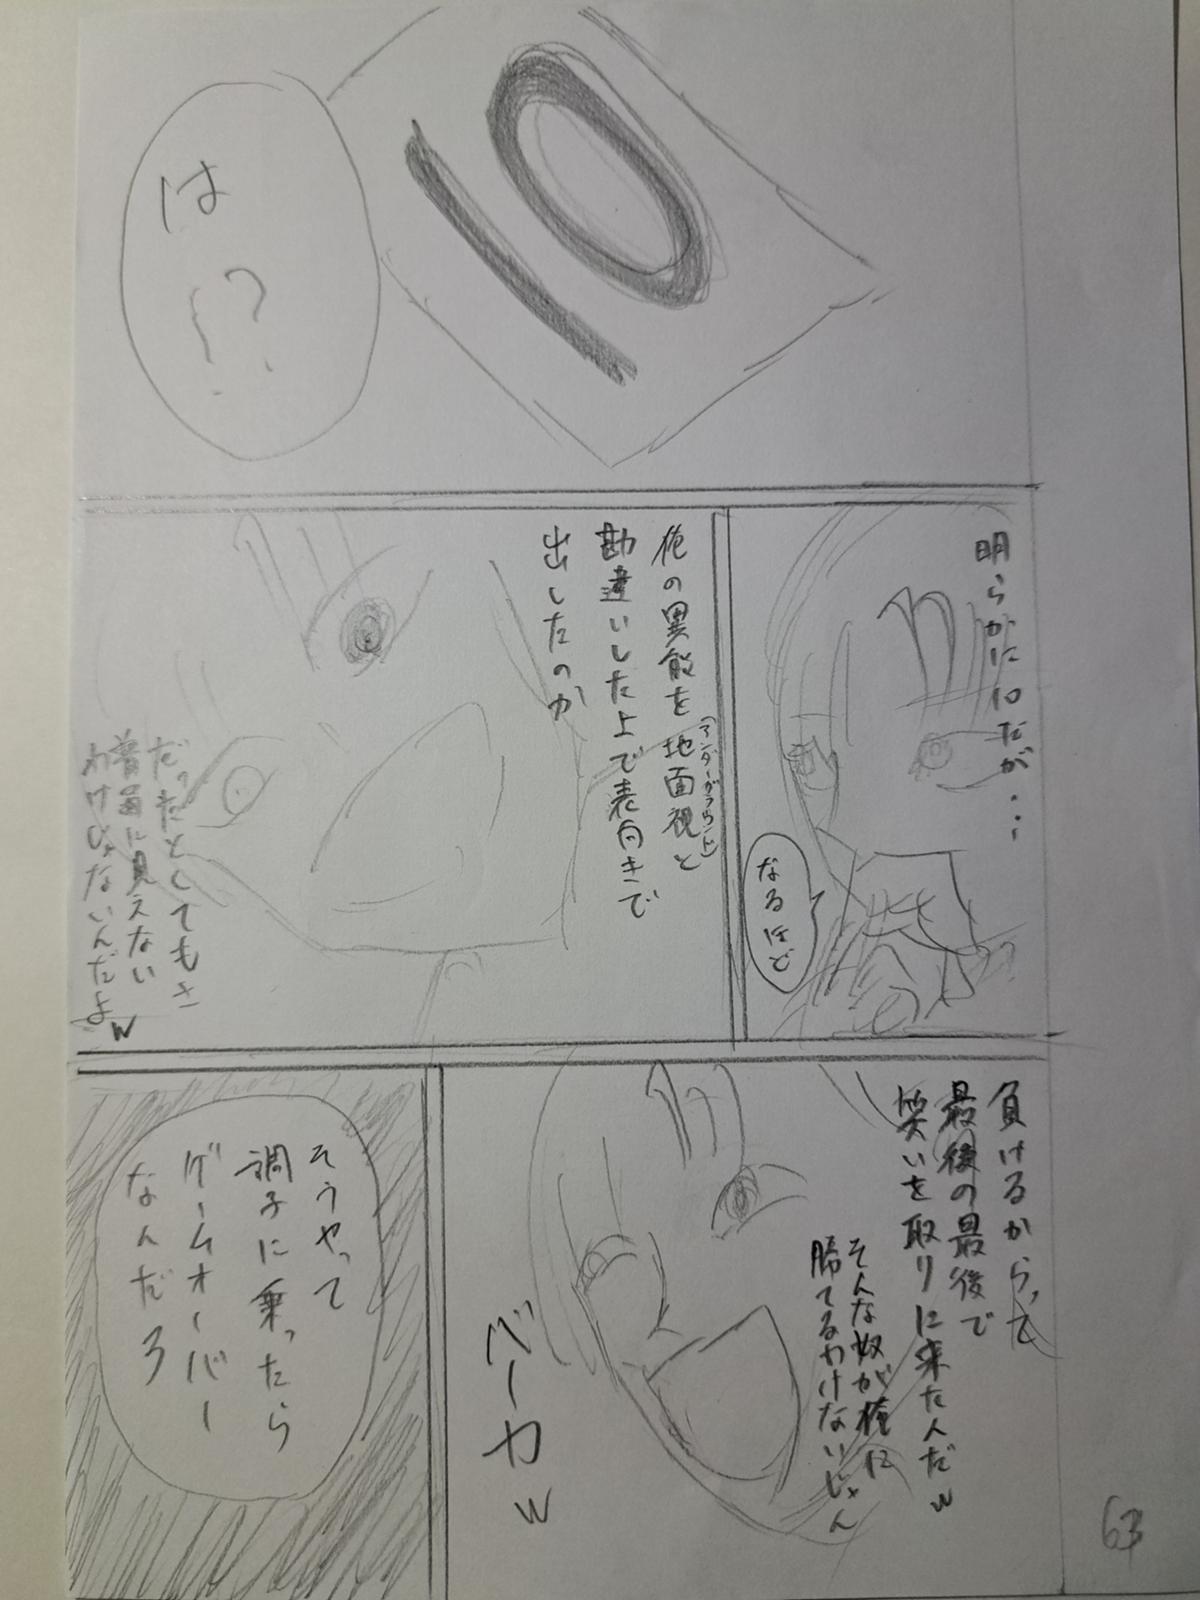 10
は
!?
明らかに10だが…
なるほど
俺の異能を地面視と
(アンダーグラウンド)
勘違いした上で表向きで
出したのか
だったとしてもさ
普通に見えない
わけじゃないんだよw
負けるからって
最後の最後で
笑いを取りに来たんだw
そんな奴が俺に
勝てるわけないじゃん
バーカw
そうやって
調子に乗ったら
ゲームオーバー
なんだろ
63